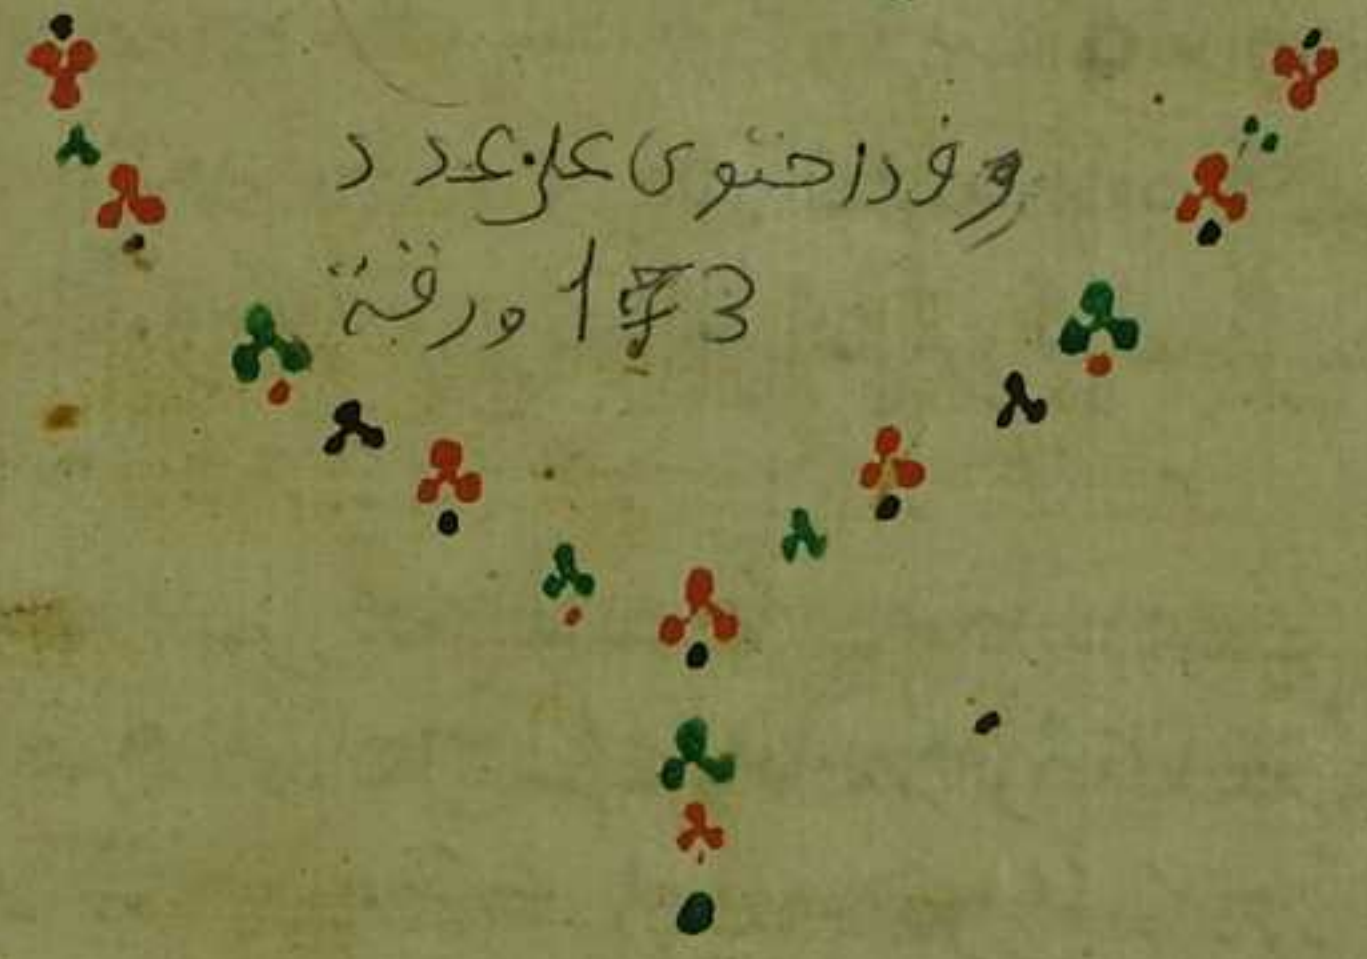 وقد احتوى على عدد
173 ورقة